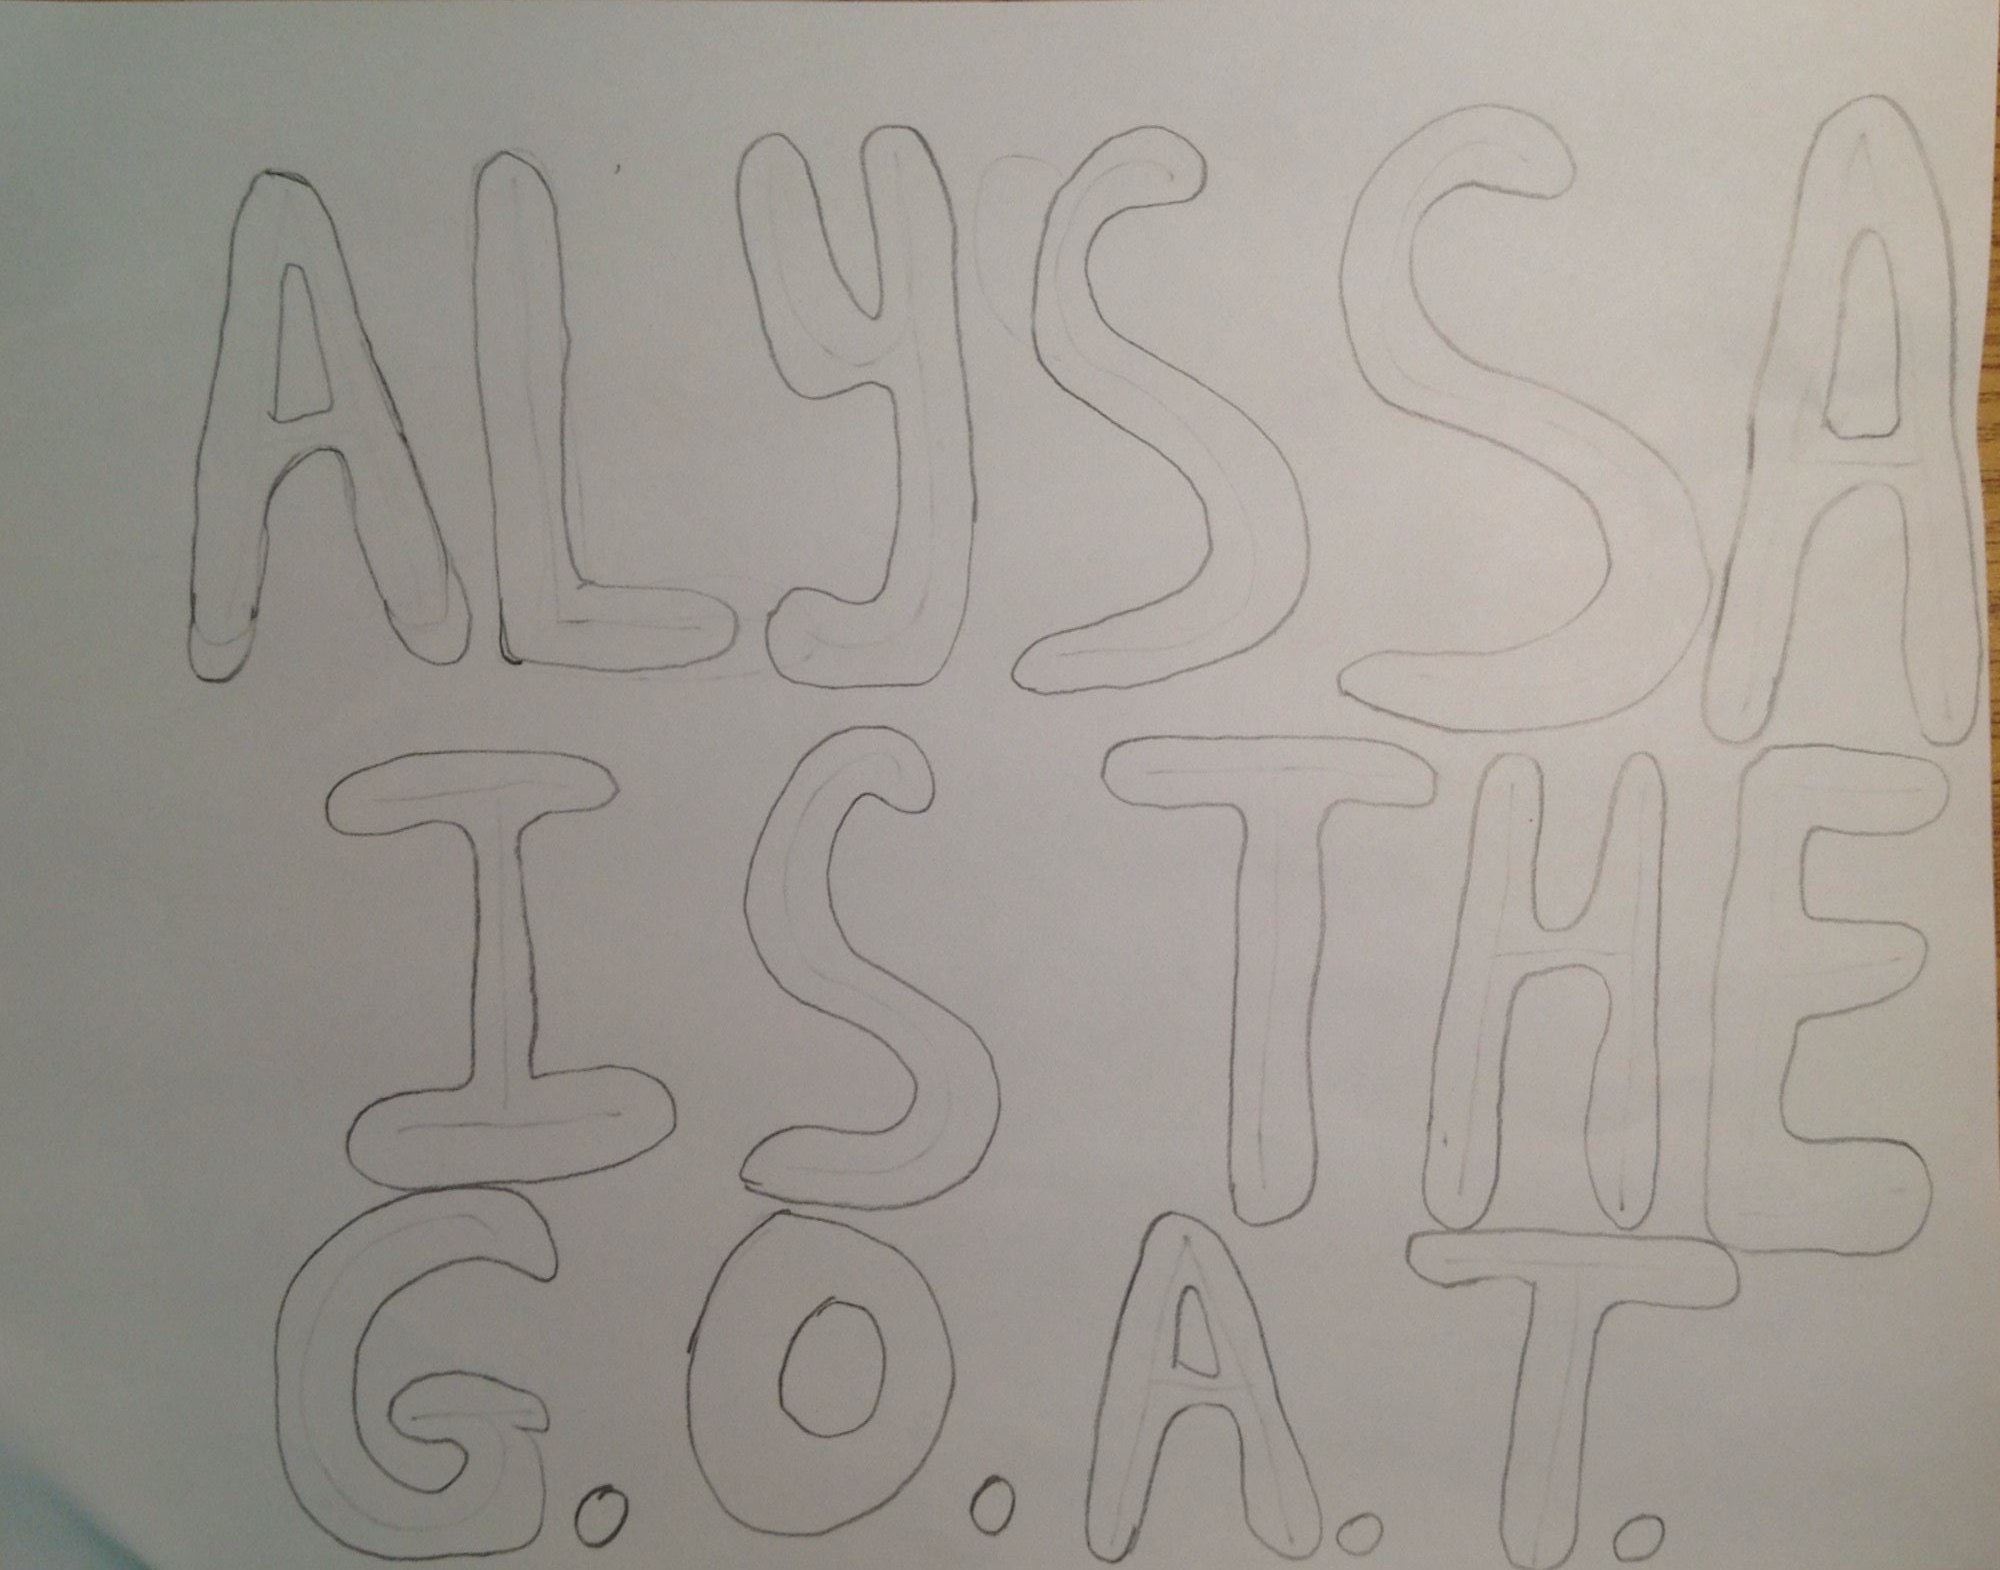 ALYSSA
IS THE
G.O.A.T.